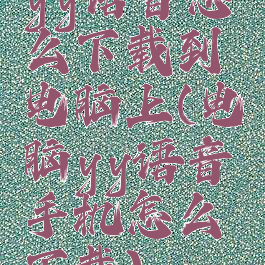 yy语音怎
么下载到
电脑上(电
脑yy语音
手机怎么
下载)